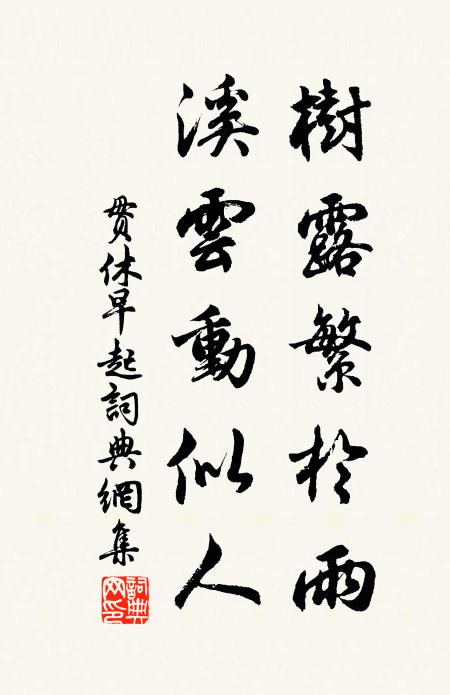 樹露繁於雨
溪雲動似人
貫休早起詞典網集
詞典網印